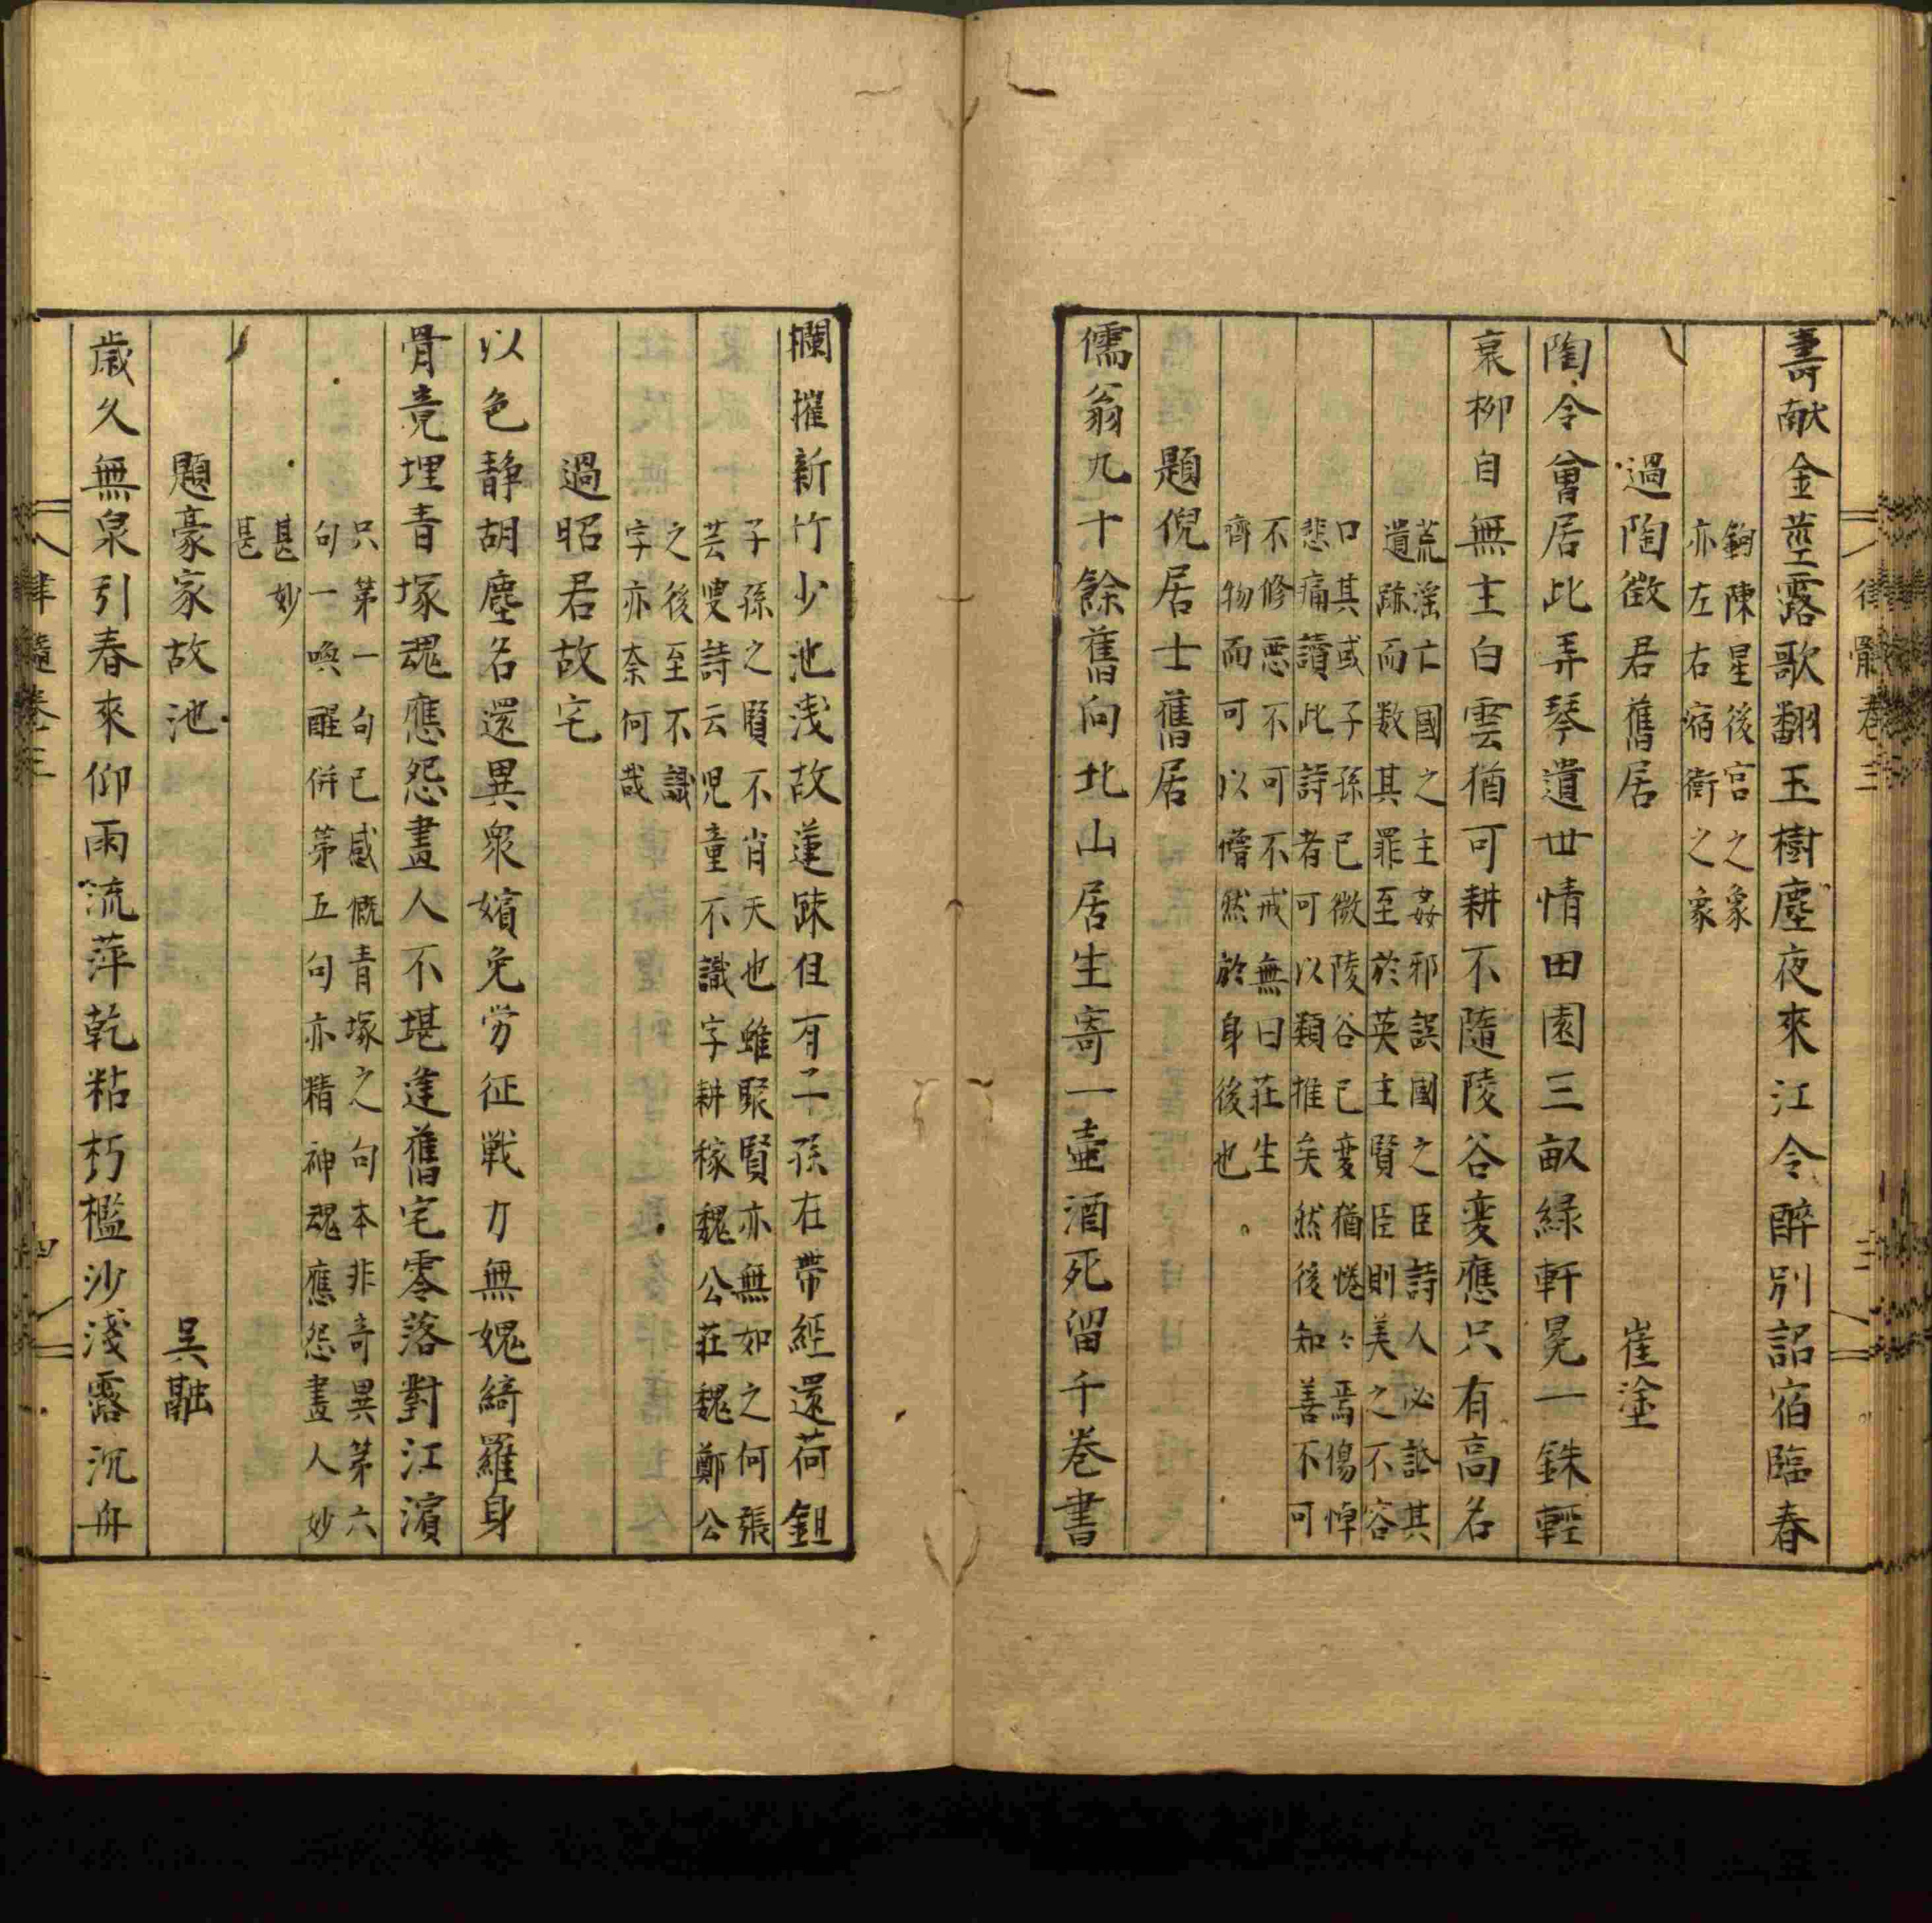 壽献金莖露歌翻玉樹塵夜來江令醉別詔宿臨春
鉤陳星後宮之象
亦左右宿衛之象
過陶徵君舊居 崔塗
陶令曾居此弄琴遺世情田園三畝緑軒冕一銖輕
衰柳自無主白雲猶可耕不隨陵谷変應只有高名
荒滛亡國之主姦邪誤國之臣詩人必詆其
遺跡而数其罪至於英主賢臣則美之不容
口其或子孫已微陵谷已変猶惓〻焉傷悼
悲痛讀此詩者可以類推矣然後知善不可
不修惡不可不戒無曰莊生
齊物而可以懵然於身後也
題倪居士舊居
儒翁九十餘舊向北山居生寄一壷酒死留千巻書
欄摧新竹少池浅故蓮踈但有子孫在帶經還荷鉏
子孫之賢不肖天也雖聚賢亦無如之何張
芸叟詩云児童不識字耕稼魏公莊魏鄭公
之後至不識
字亦奈何哉
過昭君故宅
以色靜胡塵名還異衆嬪免労征戦力無媿綺羅身
骨竟埋青塚魂應怨畫人不堪逢舊宅零落對江濱
只第一句已感慨青塚之句本非奇異第六
句一喚醒併第五句亦精神魂應怨畫人妙
甚妙
甚
題豪家故池 吳融
歲久無泉引春來仰雨流萍乾粘朽檻沙淺露沉舟
律髓卷三
四